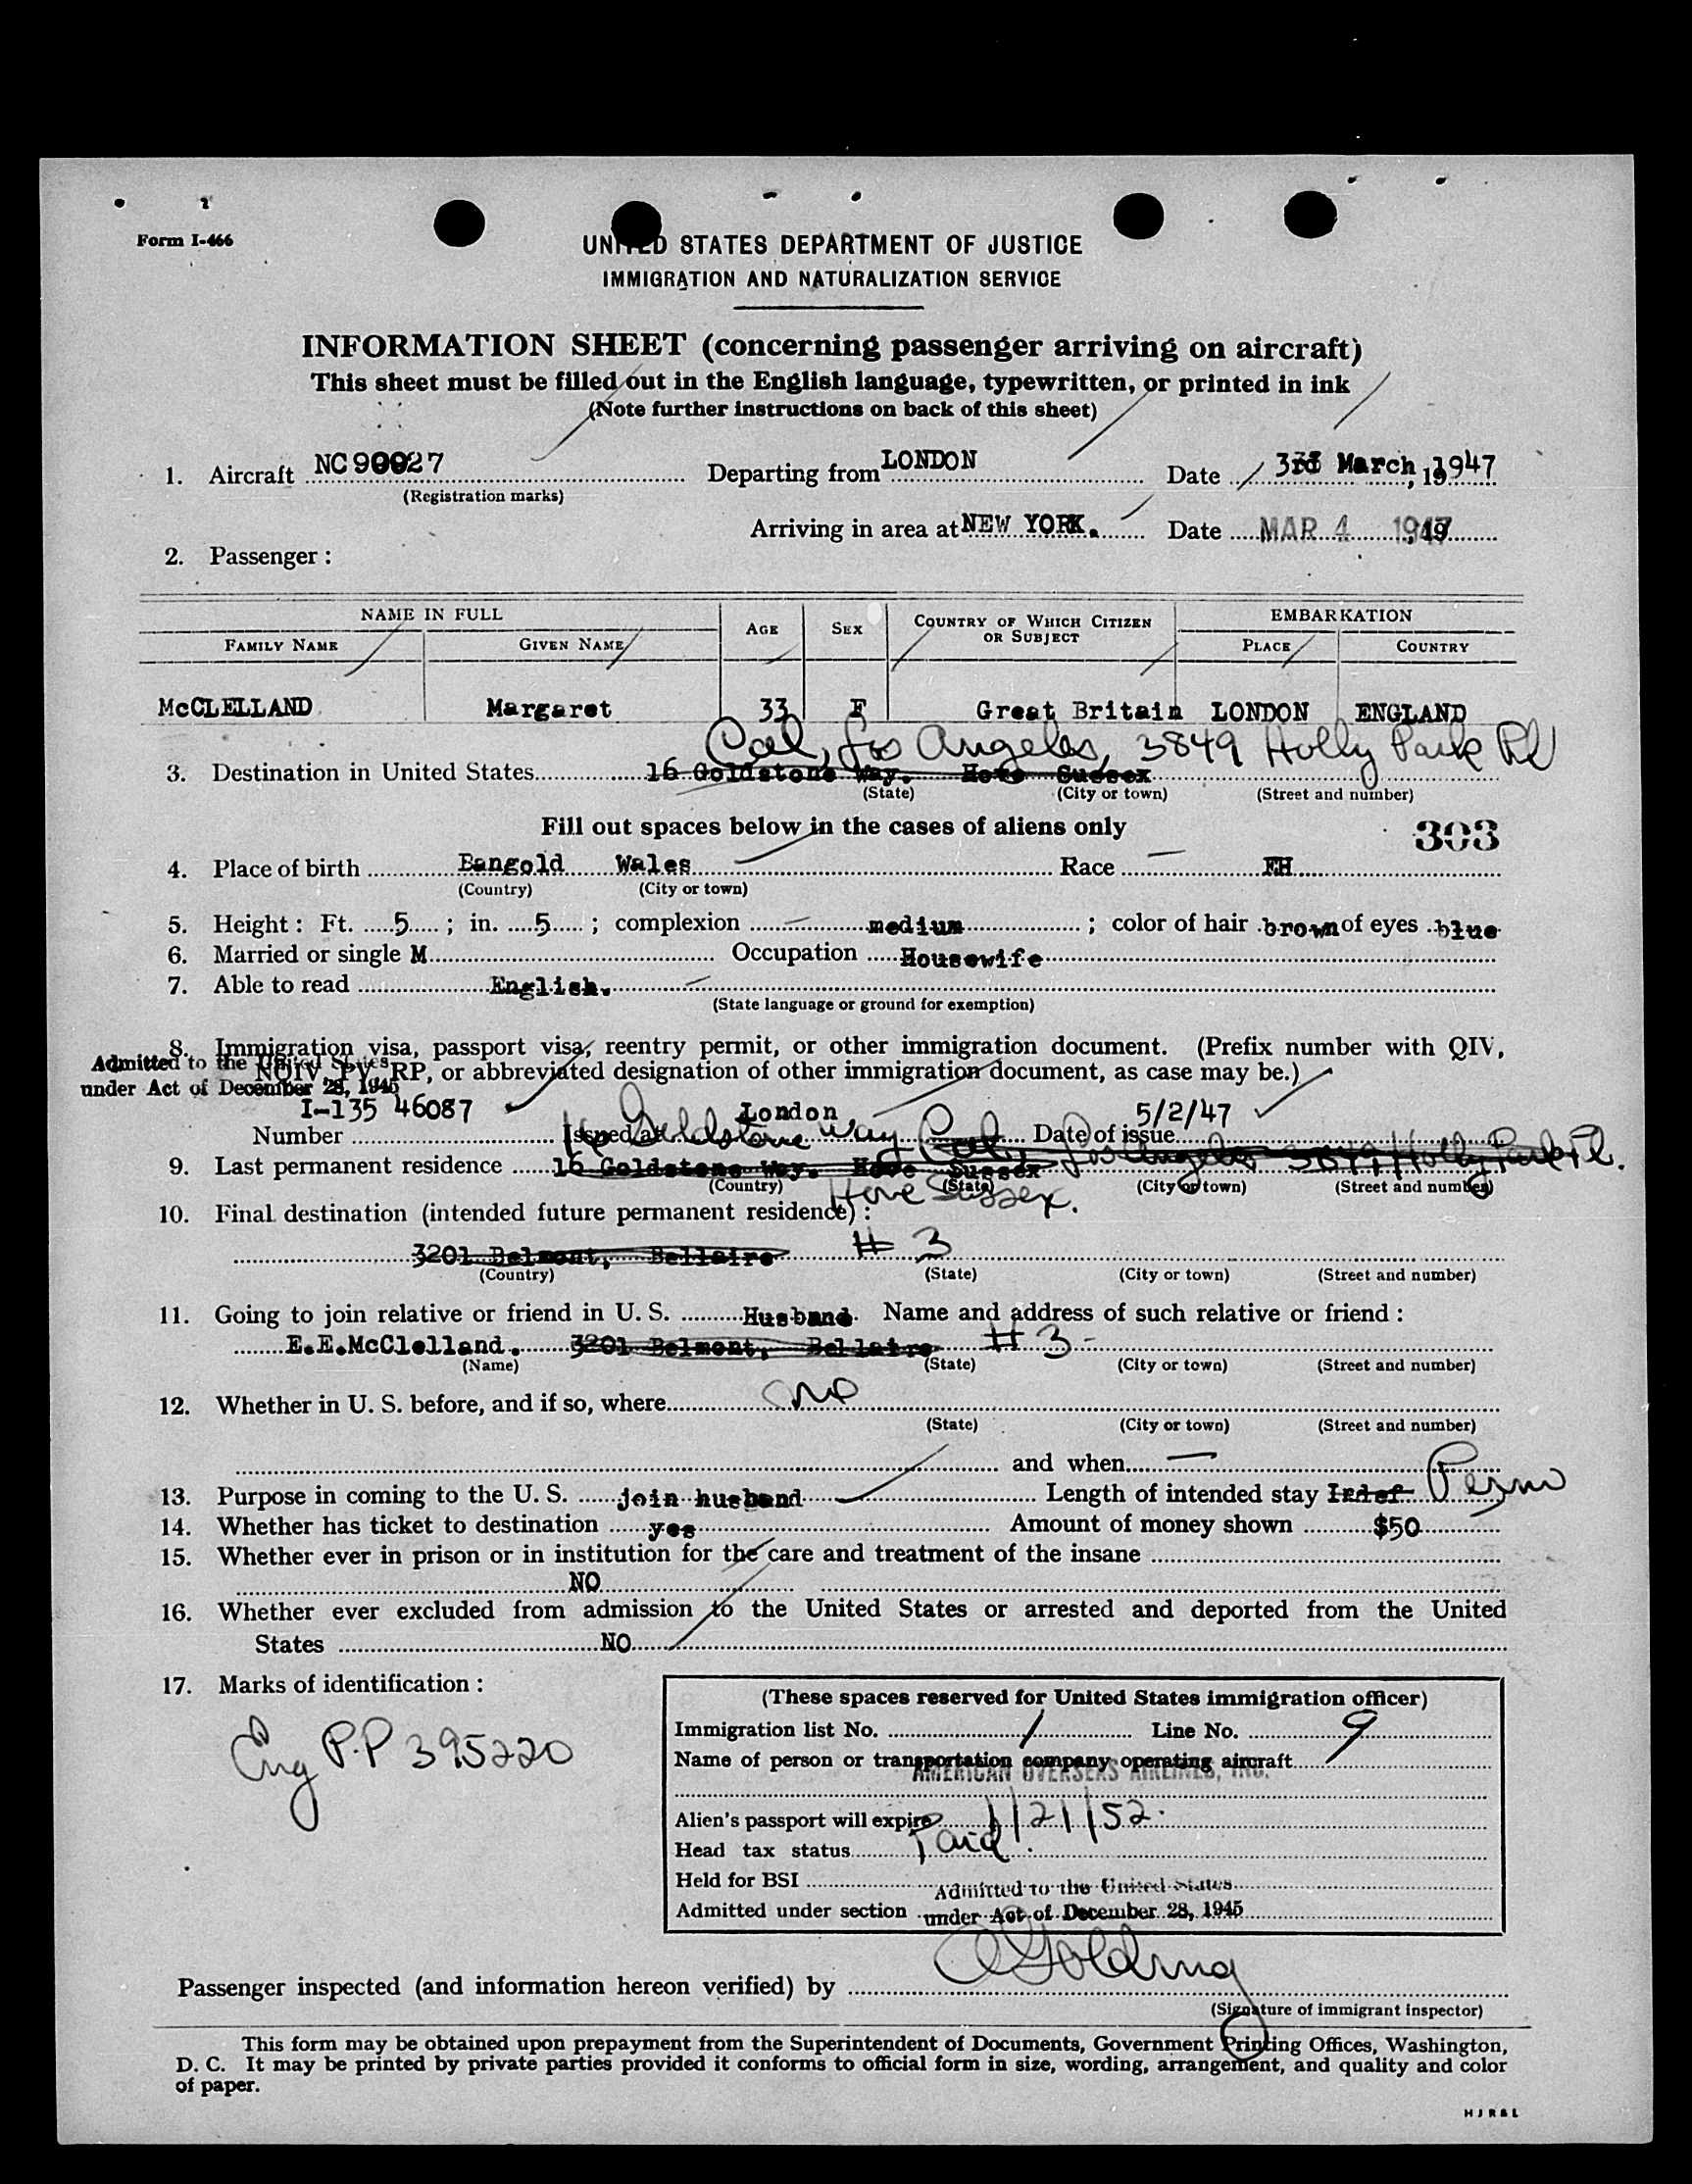 Form I-466
UNITED STATES DEPARTMENT OF JUSTICE
IMMIGRATION AND NATURALIZATION SERVICE
INFORMATION SHEET (concerning passenger arriving on aircraft)
This sheet must be filled out in the English language, typewritten, or printed in ink
(Note further instructions on back of this sheet)
1. Aircraft NC90027 Departing from LONDON Date 3rd March, 1947
(Registration marks)
Arriving in area at NEW YORK. Date MAR 4 1947, 19
2. Passenger :
NAME IN FULL AGE SEX COUNTRY OF WHICH CITIZEN OR SUBJECT EMBARKATION
FAMILY NAME GIVEN NAME PLACE COUNTRY
McCLELLAND Margaret 33 F Great Britain LONDON ENGLAND
Cal, Los Angeles, 3849 Holly Park Pl
3. Destination in United States 16 Goldstone Way. Hove Sussex
(State) (City or town) (Street and number)
Fill out spaces below in the cases of aliens only 303
4. Place of birth Bangold Wales Race EH
(Country) (City or town)
5. Height : Ft. 5 ; in. 5 ; complexion medium ; color of hair brown of eyes blue
6. Married or single M Occupation Housewife
7. Able to read English.
(State language or ground for exemption)
8. Immigration visa, passport visa, reentry permit, or other immigration document. (Prefix number with QIV,
NQIV, PV, RP, or abbreviated designation of other immigration document, as case may be.)
Admitted to the United States
under Act of December 28, 1945
I-135 46087 London 5/2/47
Number Issued at Date of issue
16 Goldstone Way Cal, Los Angeles 3849 Holly Park Pl.
9. Last permanent residence 16 Goldstone Way. Hove Sussex
(Country) (State) (City or town) (Street and number)
Hove Sussex.
10. Final destination (intended future permanent residence) :
3201 Belmont, Bellaire # 3
(Country) (State) (City or town) (Street and number)
11. Going to join relative or friend in U. S. Husband. Name and address of such relative or friend :
E.E.McClelland. 3201 Belmont, Bellaire # 3 -
(Name) (State) (City or town) (Street and number)
12. Whether in U. S. before, and if so, where no
(State) (City or town) (Street and number)
and when —
13. Purpose in coming to the U. S. join husband Length of intended stay Indef Perm
14. Whether has ticket to destination yes Amount of money shown $50
15. Whether ever in prison or in institution for the care and treatment of the insane
NO
16. Whether ever excluded from admission to the United States or arrested and deported from the United
States NO
17. Marks of identification :
Eng P.P 395220
(These spaces reserved for United States immigration officer)
Immigration list No. 1 Line No. 9
Name of person or transportation company operating aircraft
AMERICAN OVERSEAS AIRLINES, INC.
Alien's passport will expire 1/21/52.
Head tax status Paid.
Held for BSI
Admitted to the United States
Admitted under section under Act of December 28, 1945
Passenger inspected (and information hereon verified) by Golding
(Signature of immigrant inspector)
This form may be obtained upon prepayment from the Superintendent of Documents, Government Printing Offices, Washington,
D. C. It may be printed by private parties provided it conforms to official form in size, wording, arrangement, and quality and color
of paper.
HJR&L